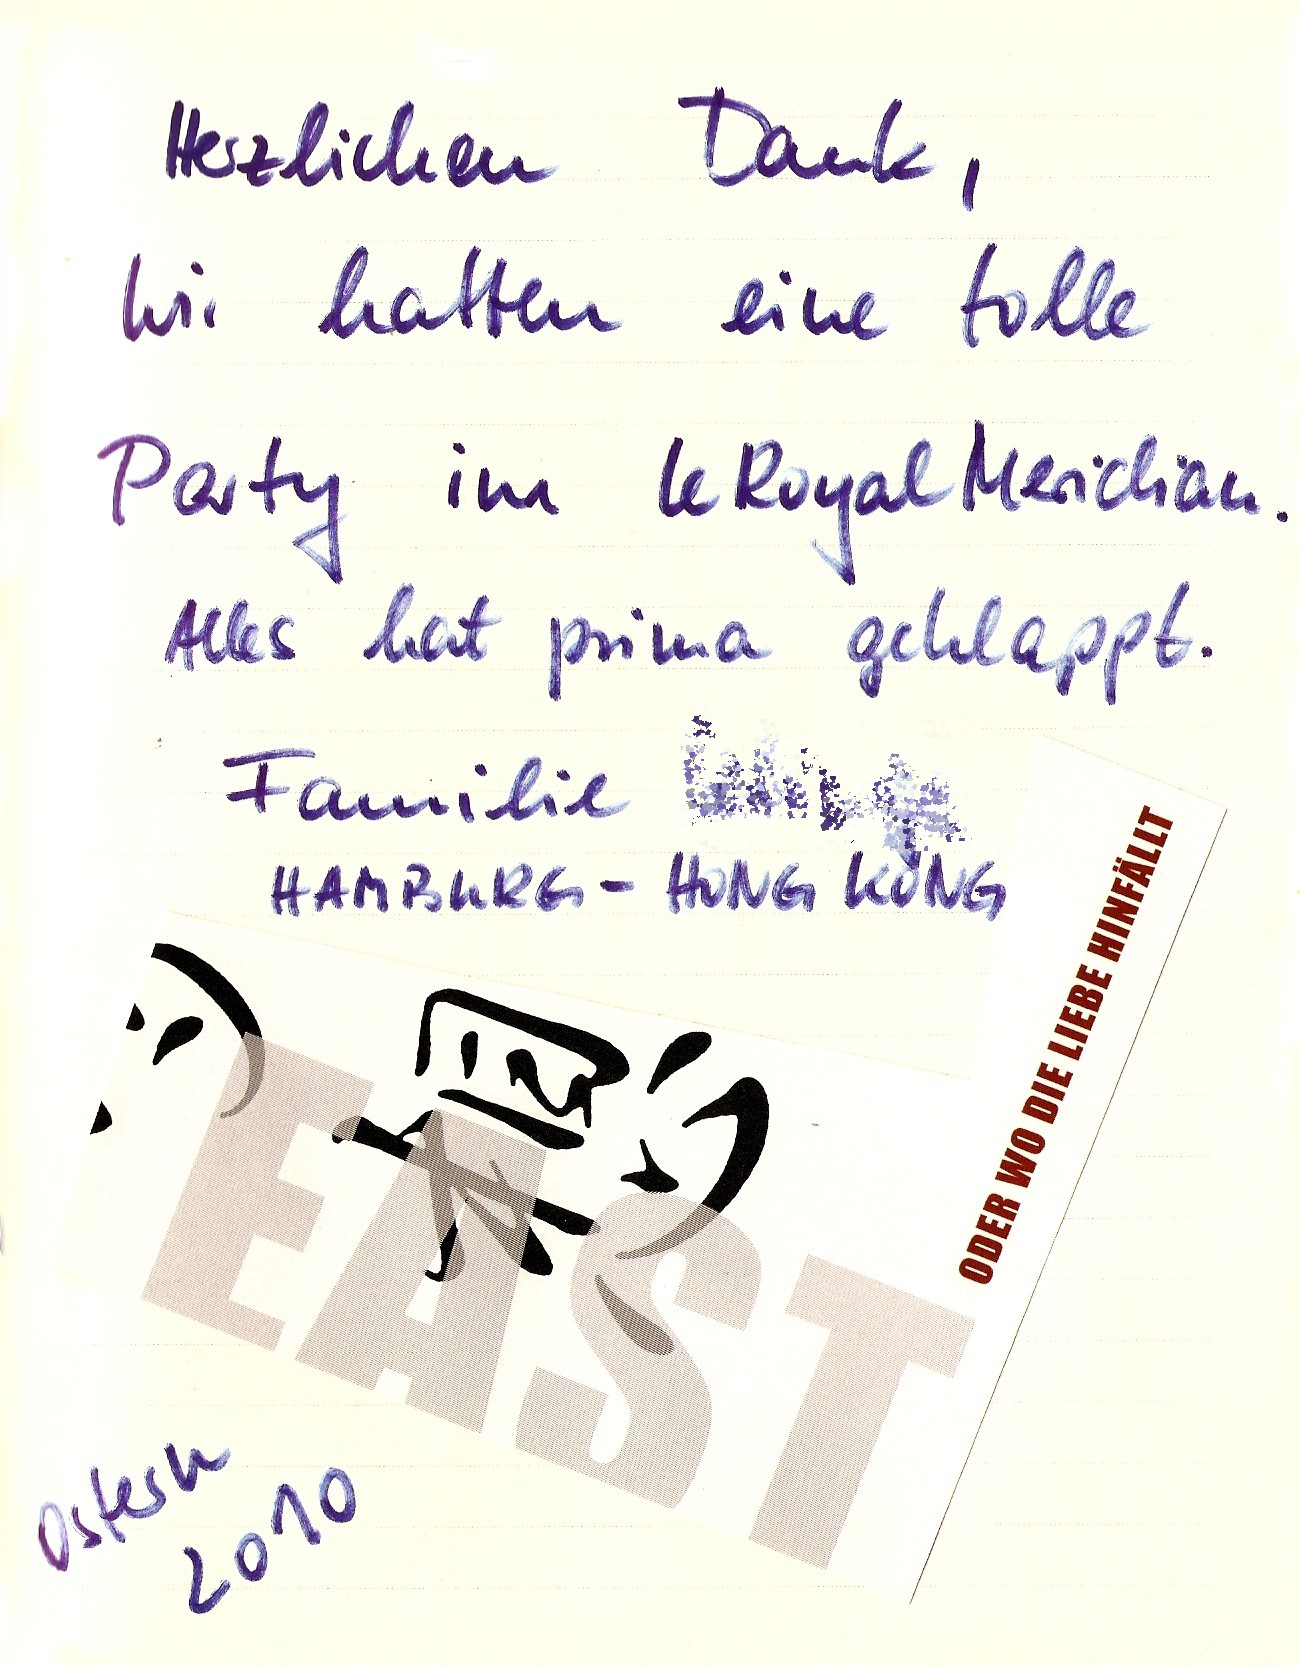 Herzlichen Dank,
wir hatten eine tolle
Party im le Royal Meridian.
Alles hat prima geklappt.
Familie
HAMBURG - HONG KONG
ODER WO DIE LIEBE HINFÄLLT
EAST
Ostern
2010